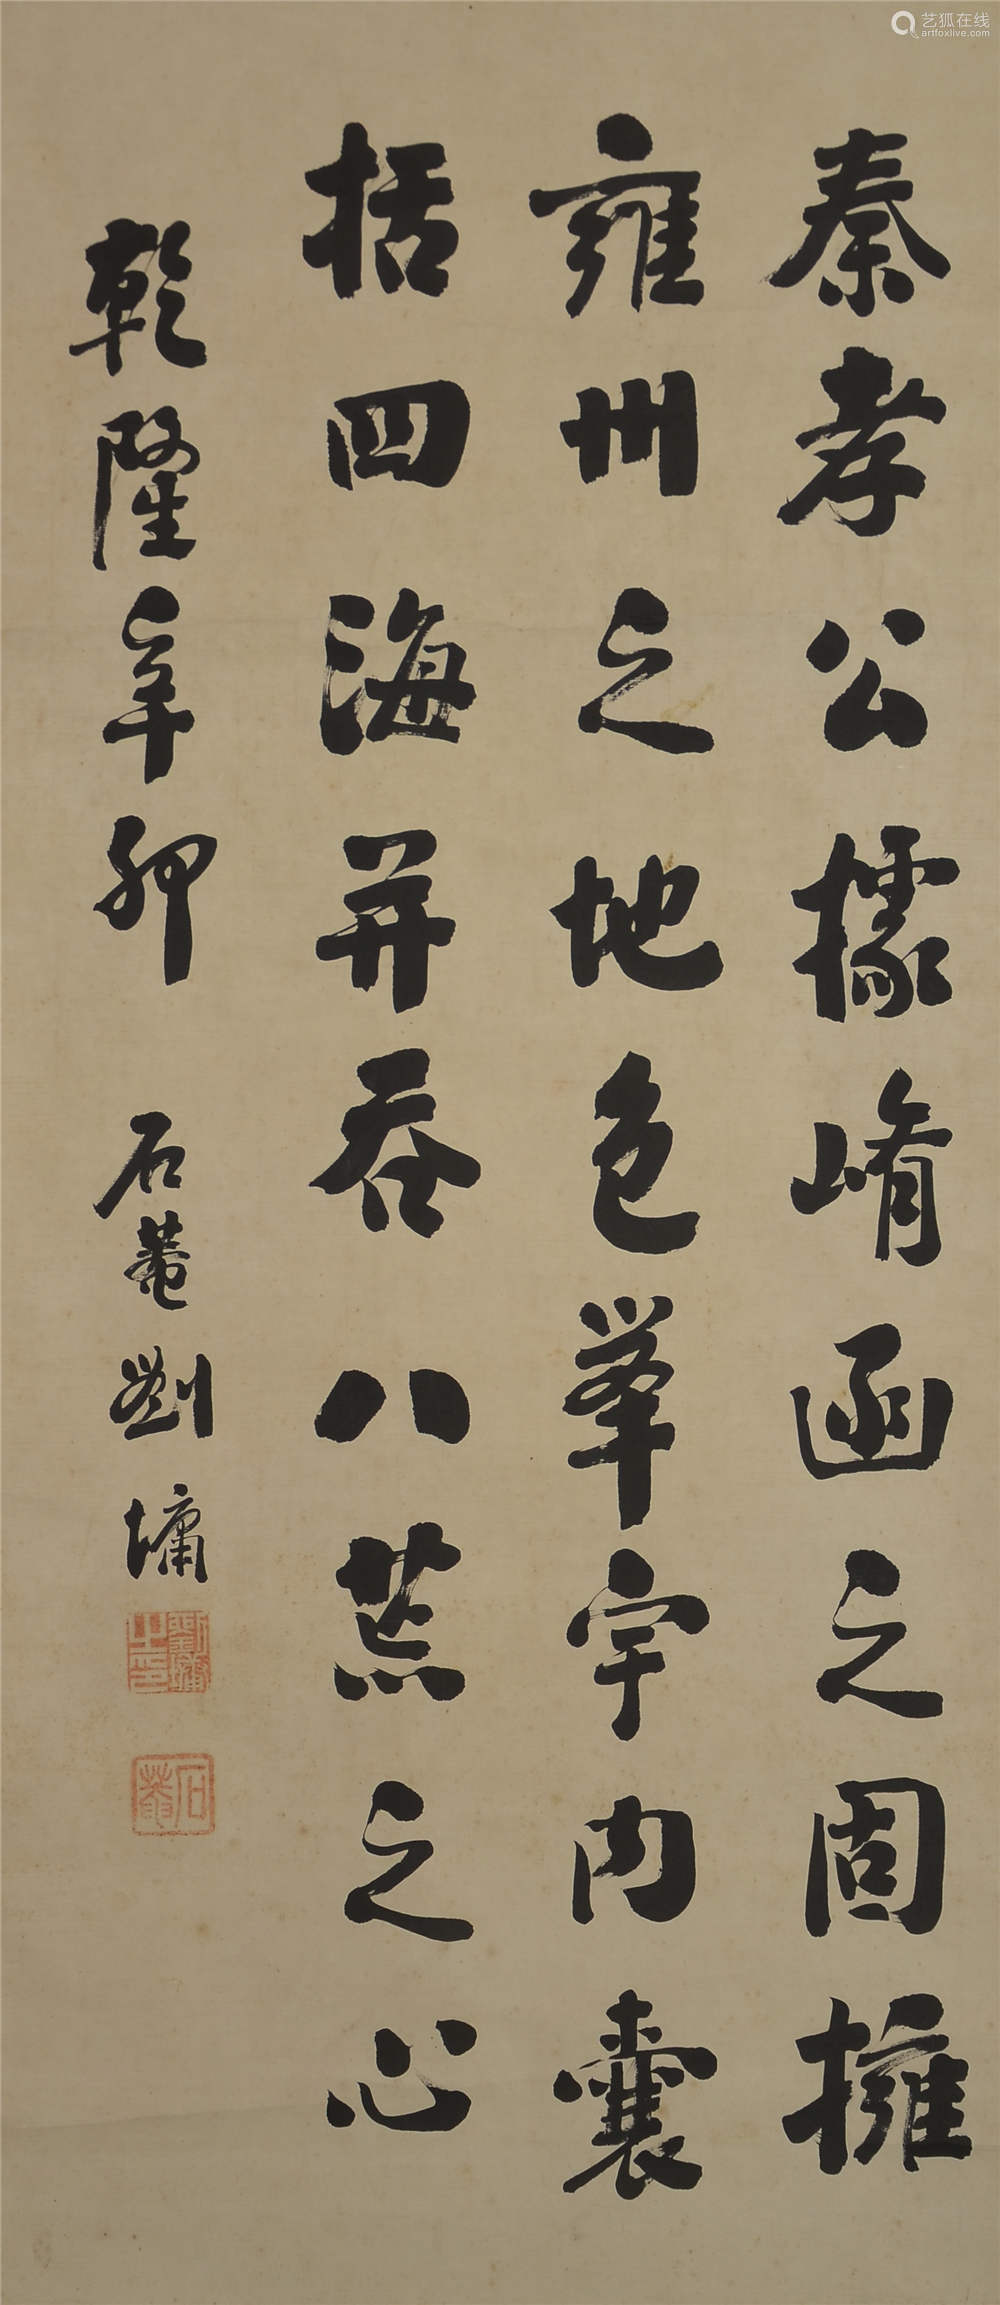 秦孝公據崤函之固擁
雍州之地包舉宇內囊
括四海并吞八荒之心
乾隆辛卯 石菴劉墉
劉墉之印
石菴
艺狐在线
artfoxlive.com